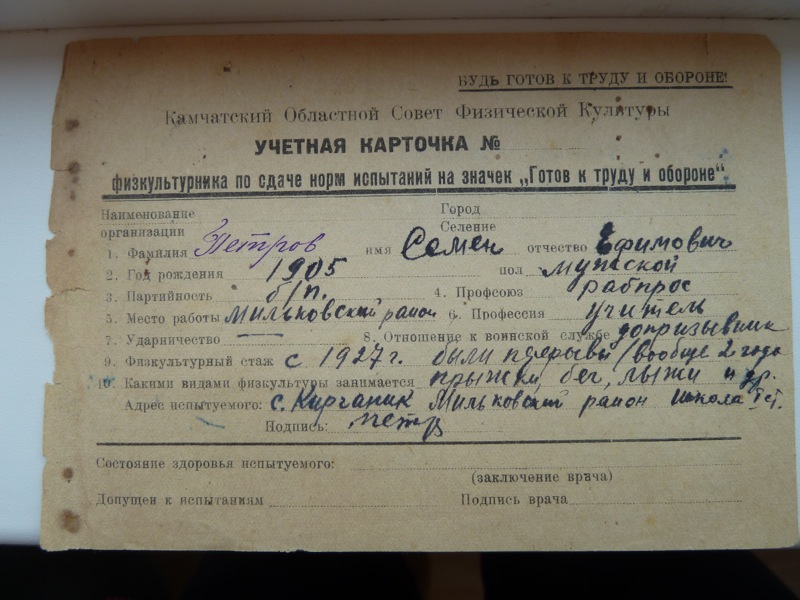 БУДЬ ГОТОВ К ТРУДУ И ОБОРОНЕ!
Камчатский Областной Совет Физической Культуры
УЧЕТНАЯ КАРТОЧКА №
физкультурника по сдаче норм испытаний на значек „Готов к труду и обороне“
Наименование организации Город Селение
1. Фамилия Петров имя Семен отчество Ефимович
2. Год рождения 1905 пол мужской
3. Партийность б/п. 4. Профсоюз рабпрос
5. Место работы Мильковский район 6. Профессия учитель
7. Ударничество — 8. Отношение к воинской службе допризывник
9. Физкультурный стаж с 1927 г. были перерывы (вообще 2 года
10. Какими видами физкультуры занимается прыжки, бег, лыжи и др.
Адрес испытуемого: с. Кирганик Мильковский район школа I ст.
Подпись: Петр
Состояние здоровья испытуемого:
(заключение врача)
Допущен к испытаниям Подпись врача